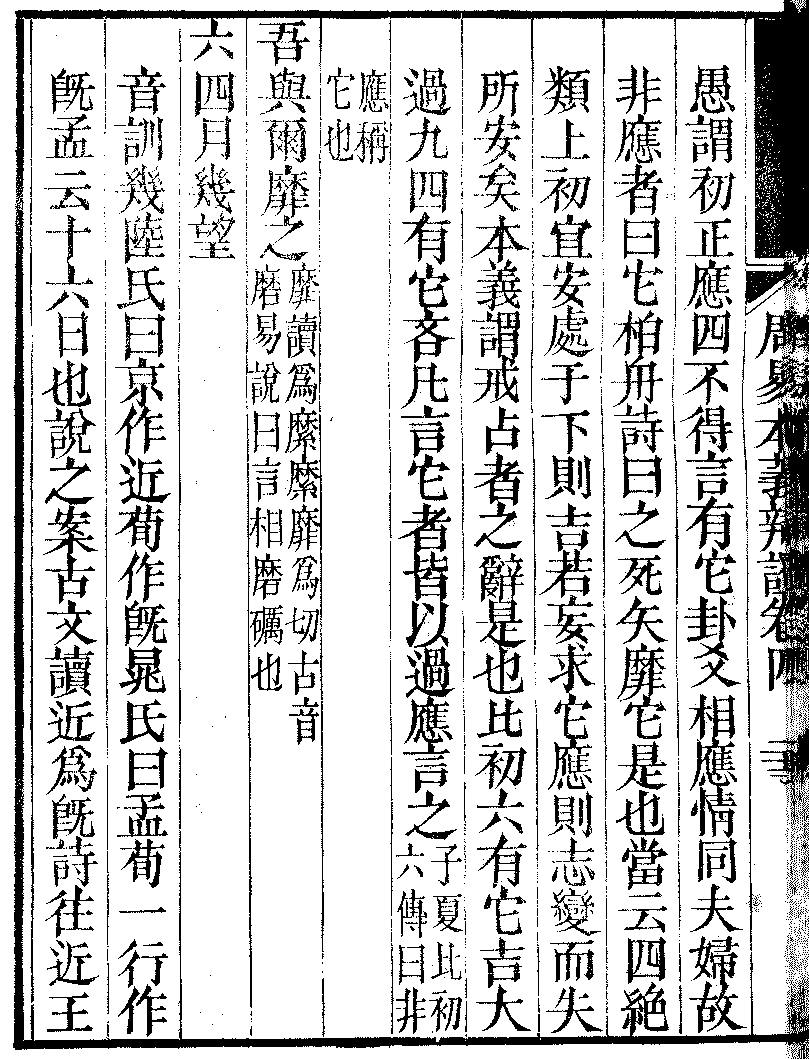 愚謂初正應四不得言有它卦爻相應情同夫婦故
非應者曰它柏舟詩曰之死矢靡它是也當云四絶
類上初宜安處于下則吉若妄求它應則志變而失
所安矣本義謂戒占者之辭是也比初六有它吉大
過九四有它吝凡言它者皆以過應言之子夏比初六傳曰非
應稱它也
吾與爾靡之靡讀爲縻縻靡爲切古音磨易說曰言相磨礪也
六四月幾望
音訓幾陸氏曰京作近荀作旣晁氏曰孟荀一行作
旣孟云十六日也說之案古文讀近爲旣詩往近王
周易本義辨證卷四